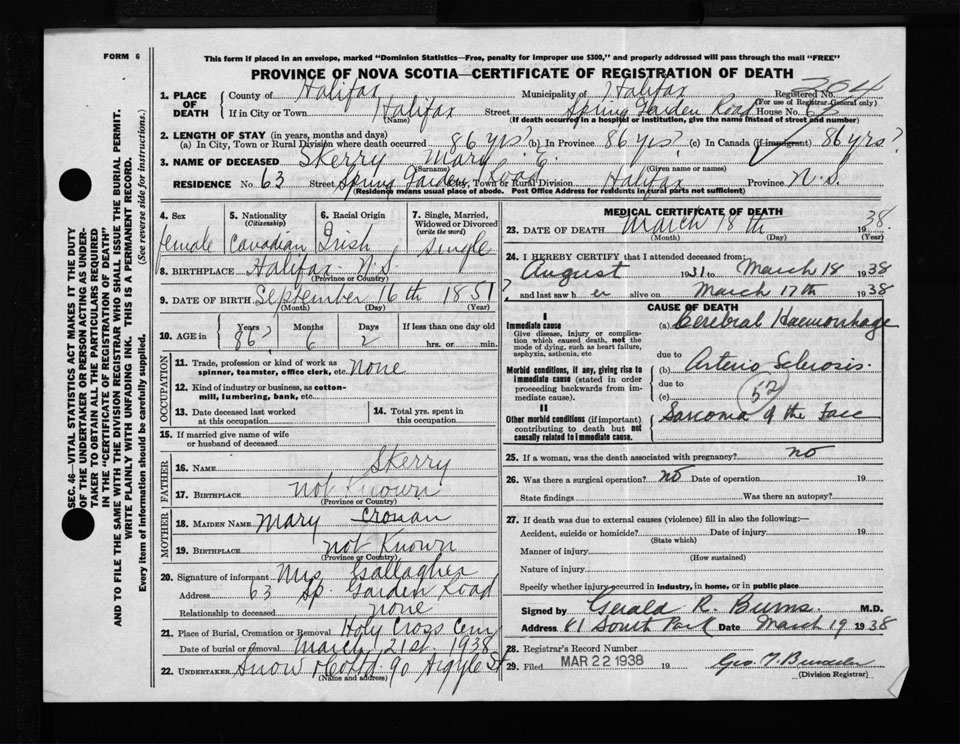 FORM 6
This form if placed in an envelope, marked "Dominion Statistics—Free, penalty for improper use $300," and properly addressed will pass through the mail "FREE"
PROVINCE OF NOVA SCOTIA—CERTIFICATE OF REGISTRATION OF DEATH
SEC. 46—VITAL STATISTICS ACT MAKES IT THE DUTY
OF THE UNDERTAKER OR PERSON ACTING AS UNDER-
TAKER TO OBTAIN ALL THE PARTICULARS REQUIRED
IN THE "CERTIFICATE OF REGISTRATION OF DEATH"
AND TO FILE THE SAME WITH THE DIVISION REGISTRAR WHO SHALL ISSUE THE BURIAL PERMIT.
WRITE PLAINLY WITH UNFADING INK. THIS IS A PERMANENT RECORD.
Every item of information should be carefully supplied. (See reverse side for instructions.)
1. PLACE OF DEATH
County of Halifax Municipality of Halifax Registered No.
(For use of Registrar-General only)
If in City or Town Halifax Street Spring Garden Road House No. 63
(Name) (If death occurred in a hospital or institution, give the name instead of street and number)
2. LENGTH OF STAY (in years, months and days)
(a) In City, Town or Rural Division where death occurred 86 yrs? (b) In Province 86 yrs? (c) In Canada (if immigrant) 86 yrs?
3. NAME OF DECEASED Skerry Mary E.
(Surname) (Given name or names)
RESIDENCE No. 63 Street Spring Garden Road City, Town or Rural Division Halifax Province N.S.
(Residence means usual place of abode. Post Office Address for residents in rural parts not sufficient)
4. Sex female
5. Nationality (Citizenship) Canadian
6. Racial Origin Irish
7. Single, Married, Widowed or Divorced (write the word) Single
8. BIRTHPLACE Halifax N.S.
(Province or Country)
9. DATE OF BIRTH September 16th 1851?
(Month) (Day) (Year)
10. AGE in Years 86? Months 6 Days 2 If less than one day
hrs. or min.
OCCUPATION
11. Trade, profession or kind of work as spinner, teamster, office clerk, etc. None
12. Kind of industry or business, as cotton-mill, lumbering, bank, etc.
13. Date deceased last worked at this occupation
14. Total yrs. spent in this occupation
15. If married give name of wife or husband of deceased
FATHER
16. NAME Skerry
17. BIRTHPLACE not Known
(Province or Country)
MOTHER
18. MAIDEN NAME Mary Cronan
19. BIRTHPLACE not Known
(Province or Country)
20. Signature of informant Mrs Gallagher
Address 63 Sp. Garden Road
Relationship to deceased none
21. Place of Burial, Cremation or Removal Holy Cross Cem
Date of burial or removal March 21st 1938
22. UNDERTAKER Snow & Co Ltd. 90 Argyle St
(Name and address)
MEDICAL CERTIFICATE OF DEATH
23. DATE OF DEATH March 18th 1938
(Month) (Day) (Year)
24. I HEREBY CERTIFY that I attended deceased from:
August 1931 to March 18 1938
and last saw h er alive on March 17th 1938
CAUSE OF DEATH
I
Immediate cause
Give disease, injury or complication which caused death, not the mode of dying, such as heart failure, asphyxia, asthenia, etc
(a) Cerebral Haemorrhage
due to
Morbid conditions, if any, giving rise to immediate cause (stated in order proceeding backwards from immediate cause).
(b) Arterio Sclerosis.
due to
(c) 52
II
Other morbid conditions (if important) contributing to death but not causally related to immediate cause.
Sarcoma of the Face
25. If a woman, was the death associated with pregnancy? no
26. Was there a surgical operation? no Date of operation 19
State findings Was there an autopsy?
27. If death was due to external causes (violence) fill in also the following:—
Accident, suicide or homicide? Date of injury 19
(State which)
Manner of injury
(How sustained)
Nature of injury
Specify whether injury occurred in industry, in home, or in public place
Signed by Gerald R. Burns. M.D.
Address 81 South Park Date March 19 1938
28. Registrar's Record Number
29. Filed MAR 22 1938 19
(Division Registrar)